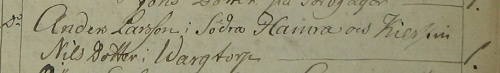 Do Anders Larsson i Södra Hamra och Kierstin
Nils Dotter i Wargtorp